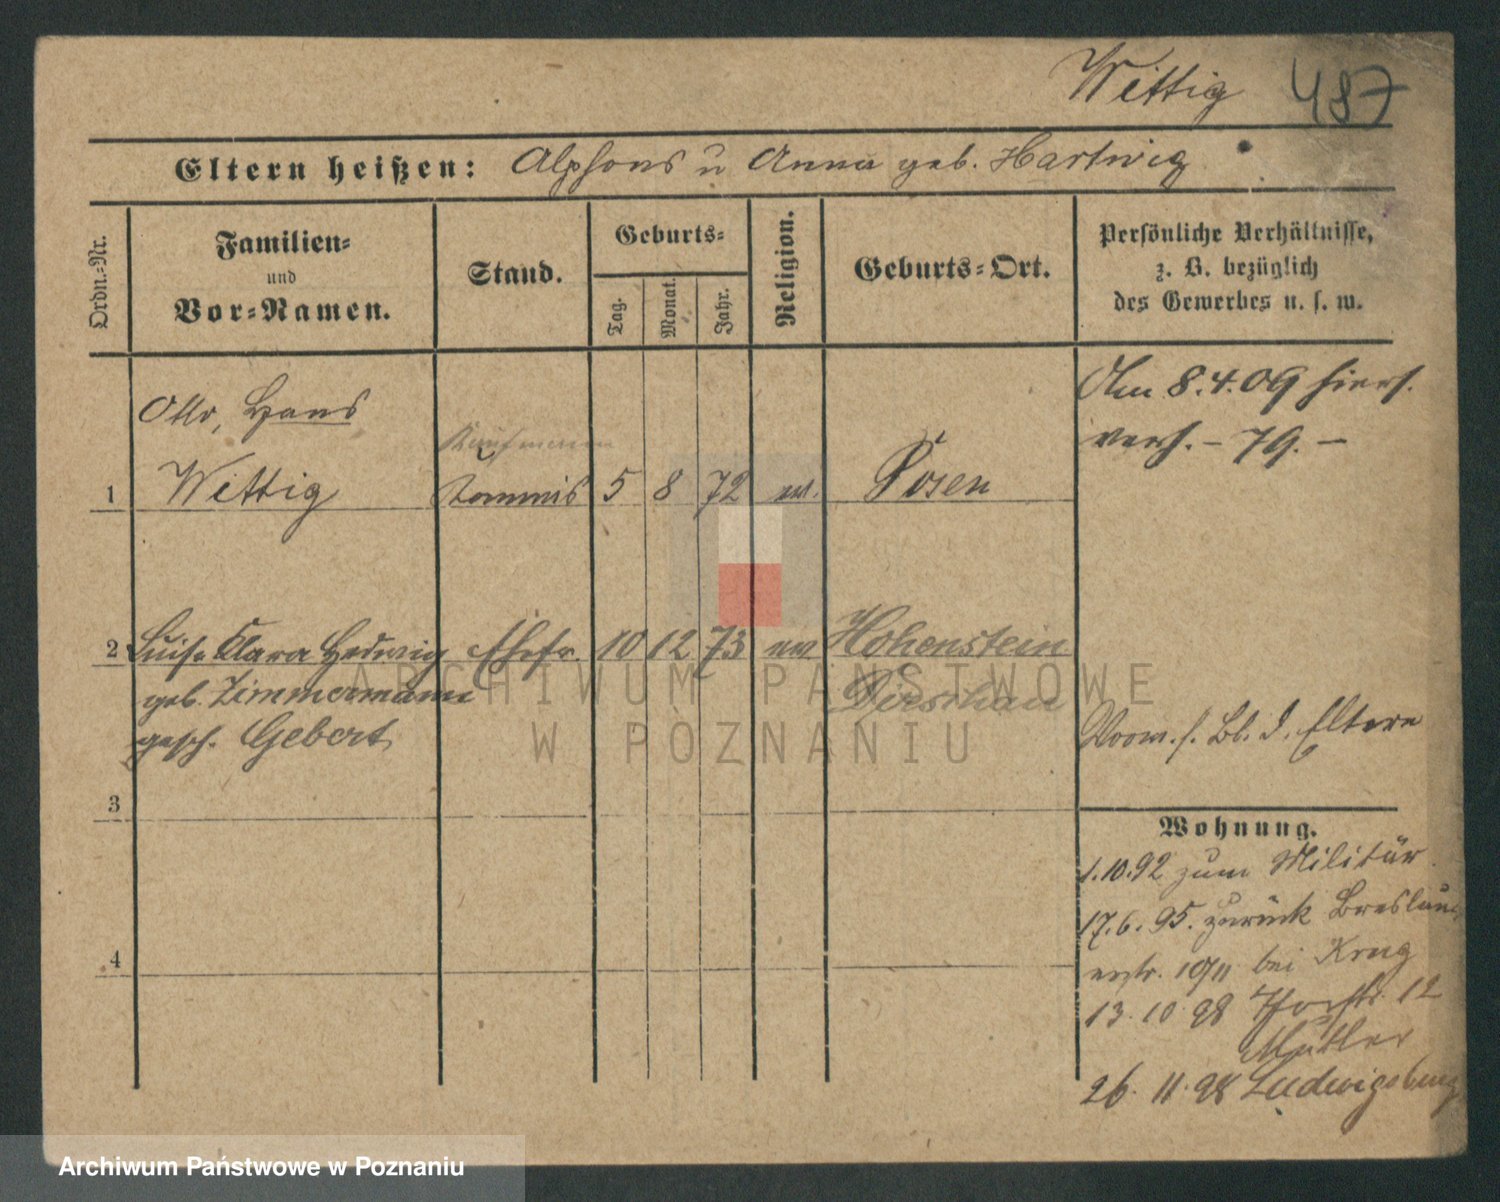 Wittig 487
Eltern heißen: Alphons u Anna geb. Hartwig
Ordn.=Nr.
Familien=
und
Vor=Namen.
Stand.
Geburts=
Tag.
Monat.
Jahr.
Religion.
Geburts=Ort.
Persönliche Verhältnisse,
z. B. bezüglich
des Gewerbes u. s. w.
Otto, Hans
Kaufmann
1 Wittig Kommis 5 8 72 ev. Posen
Am 8.4.09 hiers.
verh. – 79. –
2 Luise Klara Hedwig Ehefr. 10 12 73 ev Hohenstein
geb. Zimmermann Dirschau
gesch. Gebert
Vorm. s. Bl. d. Eltern
3
4
Wohnung.
1.10.92 zum Militär
17.6.95. zurück Breslau
erstr. 10/11 bei Krug
13.10.98 12
Mutter
26.11.98 Ludwigsburg
ARCHIWUM PAŃSTWOWE
W POZNANIU
Archiwum Państwowe w Poznaniu